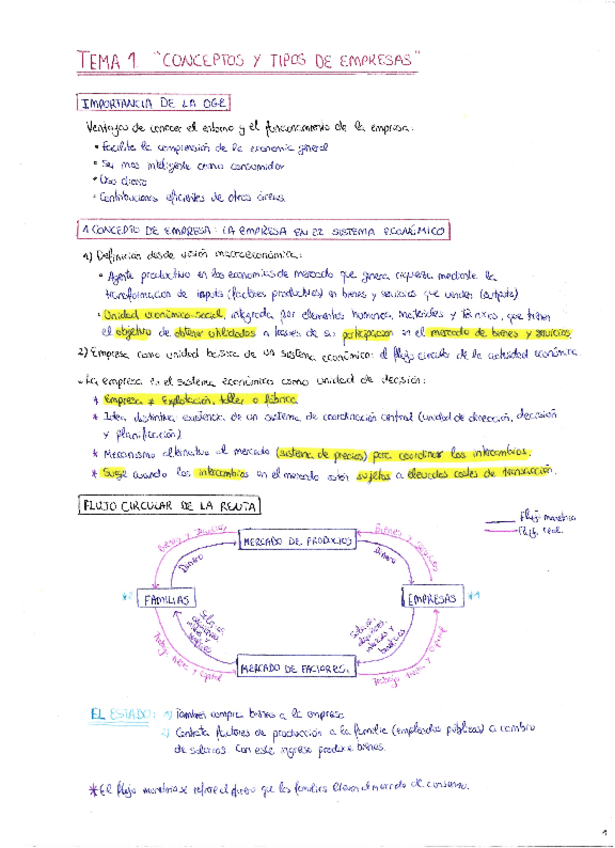 TEMA 1 "CONCEPTOS Y TIPOS DE EMPRESAS"
IMPORTANCIA DE LA OGE
Ventajas de conocer el entorno y el funcionamiento de la empresa:
• Facilita la comprensión de la economía general
• Ser más inteligente como consumidor
• Uso diario
• Contribuciones eficientes de otras áreas
1 CONCEPTO DE EMPRESA: LA EMPRESA EN EL SISTEMA ECONÓMICO
1) Definición desde visión macroeconómica:
• Agente productivo en las economías de mercado que genera riqueza mediante la
transformación de inputs (factores productivos) en bienes y servicios que venden (outputs)
• Unidad económico-social, integrada por elementos humanos, materiales y técnicos, que tienen
el objetivo de obtener utilidades a traves de su participación en el mercado de bienes y servicios.
2) Empresa como unidad básica de un sistema económico: el flujo circular de la actividad económica
- La empresa en el sistema económico como unidad de decisión:
* Empresa ≠ Explotación, taller o fábrica.
* Idea distintiva existencia de un sistema de coordinación central (unidad de dirección, decisión
y planificación)
* Mecanismo alternativo al mercado (sistema de precios) para coordinar los intercambios.
* Surge cuando los intercambios en el mercado están sujetos a elevados costes de transacción.
FLUJO CIRCULAR DE LA RENTA
Flujo monetario
Flujo real
Bienes y Servicios
MERCADO DE PRODUCTOS
Bienes y servicios
Dinero
Dinero
*2 FAMILIAS
EMPRESAS *1
Salarios
Salarios
MERCADO DE FACTORES.
Trabajo y Capital
Trabajo y Capital
EL ESTADO: 1) También compra bienes a la empresa
2) Contrata factores de producción a la familia (empleados públicos) a cambio
de salarios. Con este ingreso produce bienes.
*El flujo monetario se refiere al dinero que las familias llevan al mercado de consumo.
1